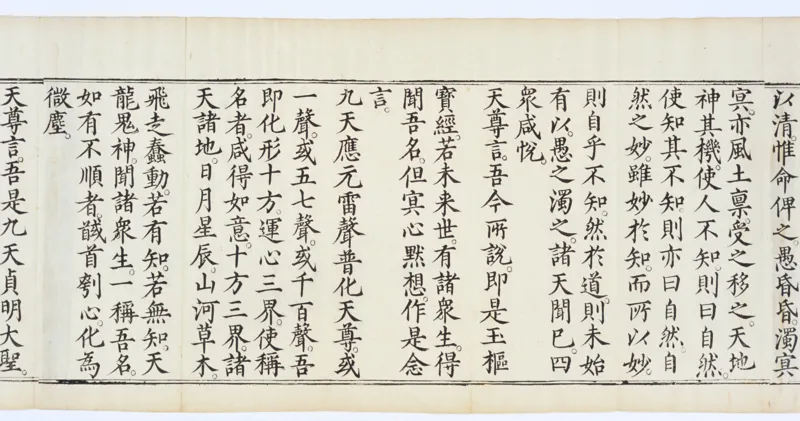 以清。惟命俾之。愚昏昏。濁冥
冥。亦風土禀。受之移之。天地
神其機。使人不知。則曰自然。
使知其不知。則亦曰自然。自
然之妙。雖妙於知。而所以妙。
則自乎不知。然於道。則未始
有以。愚之濁之。諸天聞已。四
眾咸悅。
天尊言。吾今所說。即是玉樞
寶經。若未来世。有諸衆生。得
聞吾名。但冥心默想。作是念
言。
九天應元雷聲普化天尊。或
一聲。或五七聲。或千百聲。吾
即化形十方。運心三界。使稱
名者。咸得如意。十方三界。諸
天諸地。日月星辰。山河草木。
飛走蠢動。若有知。若無知。天
龍鬼神。聞諸衆生。一稱吾名。
如有不順者。馘首刳心。化為
微塵。
天尊言。吾是九天貞明大聖。